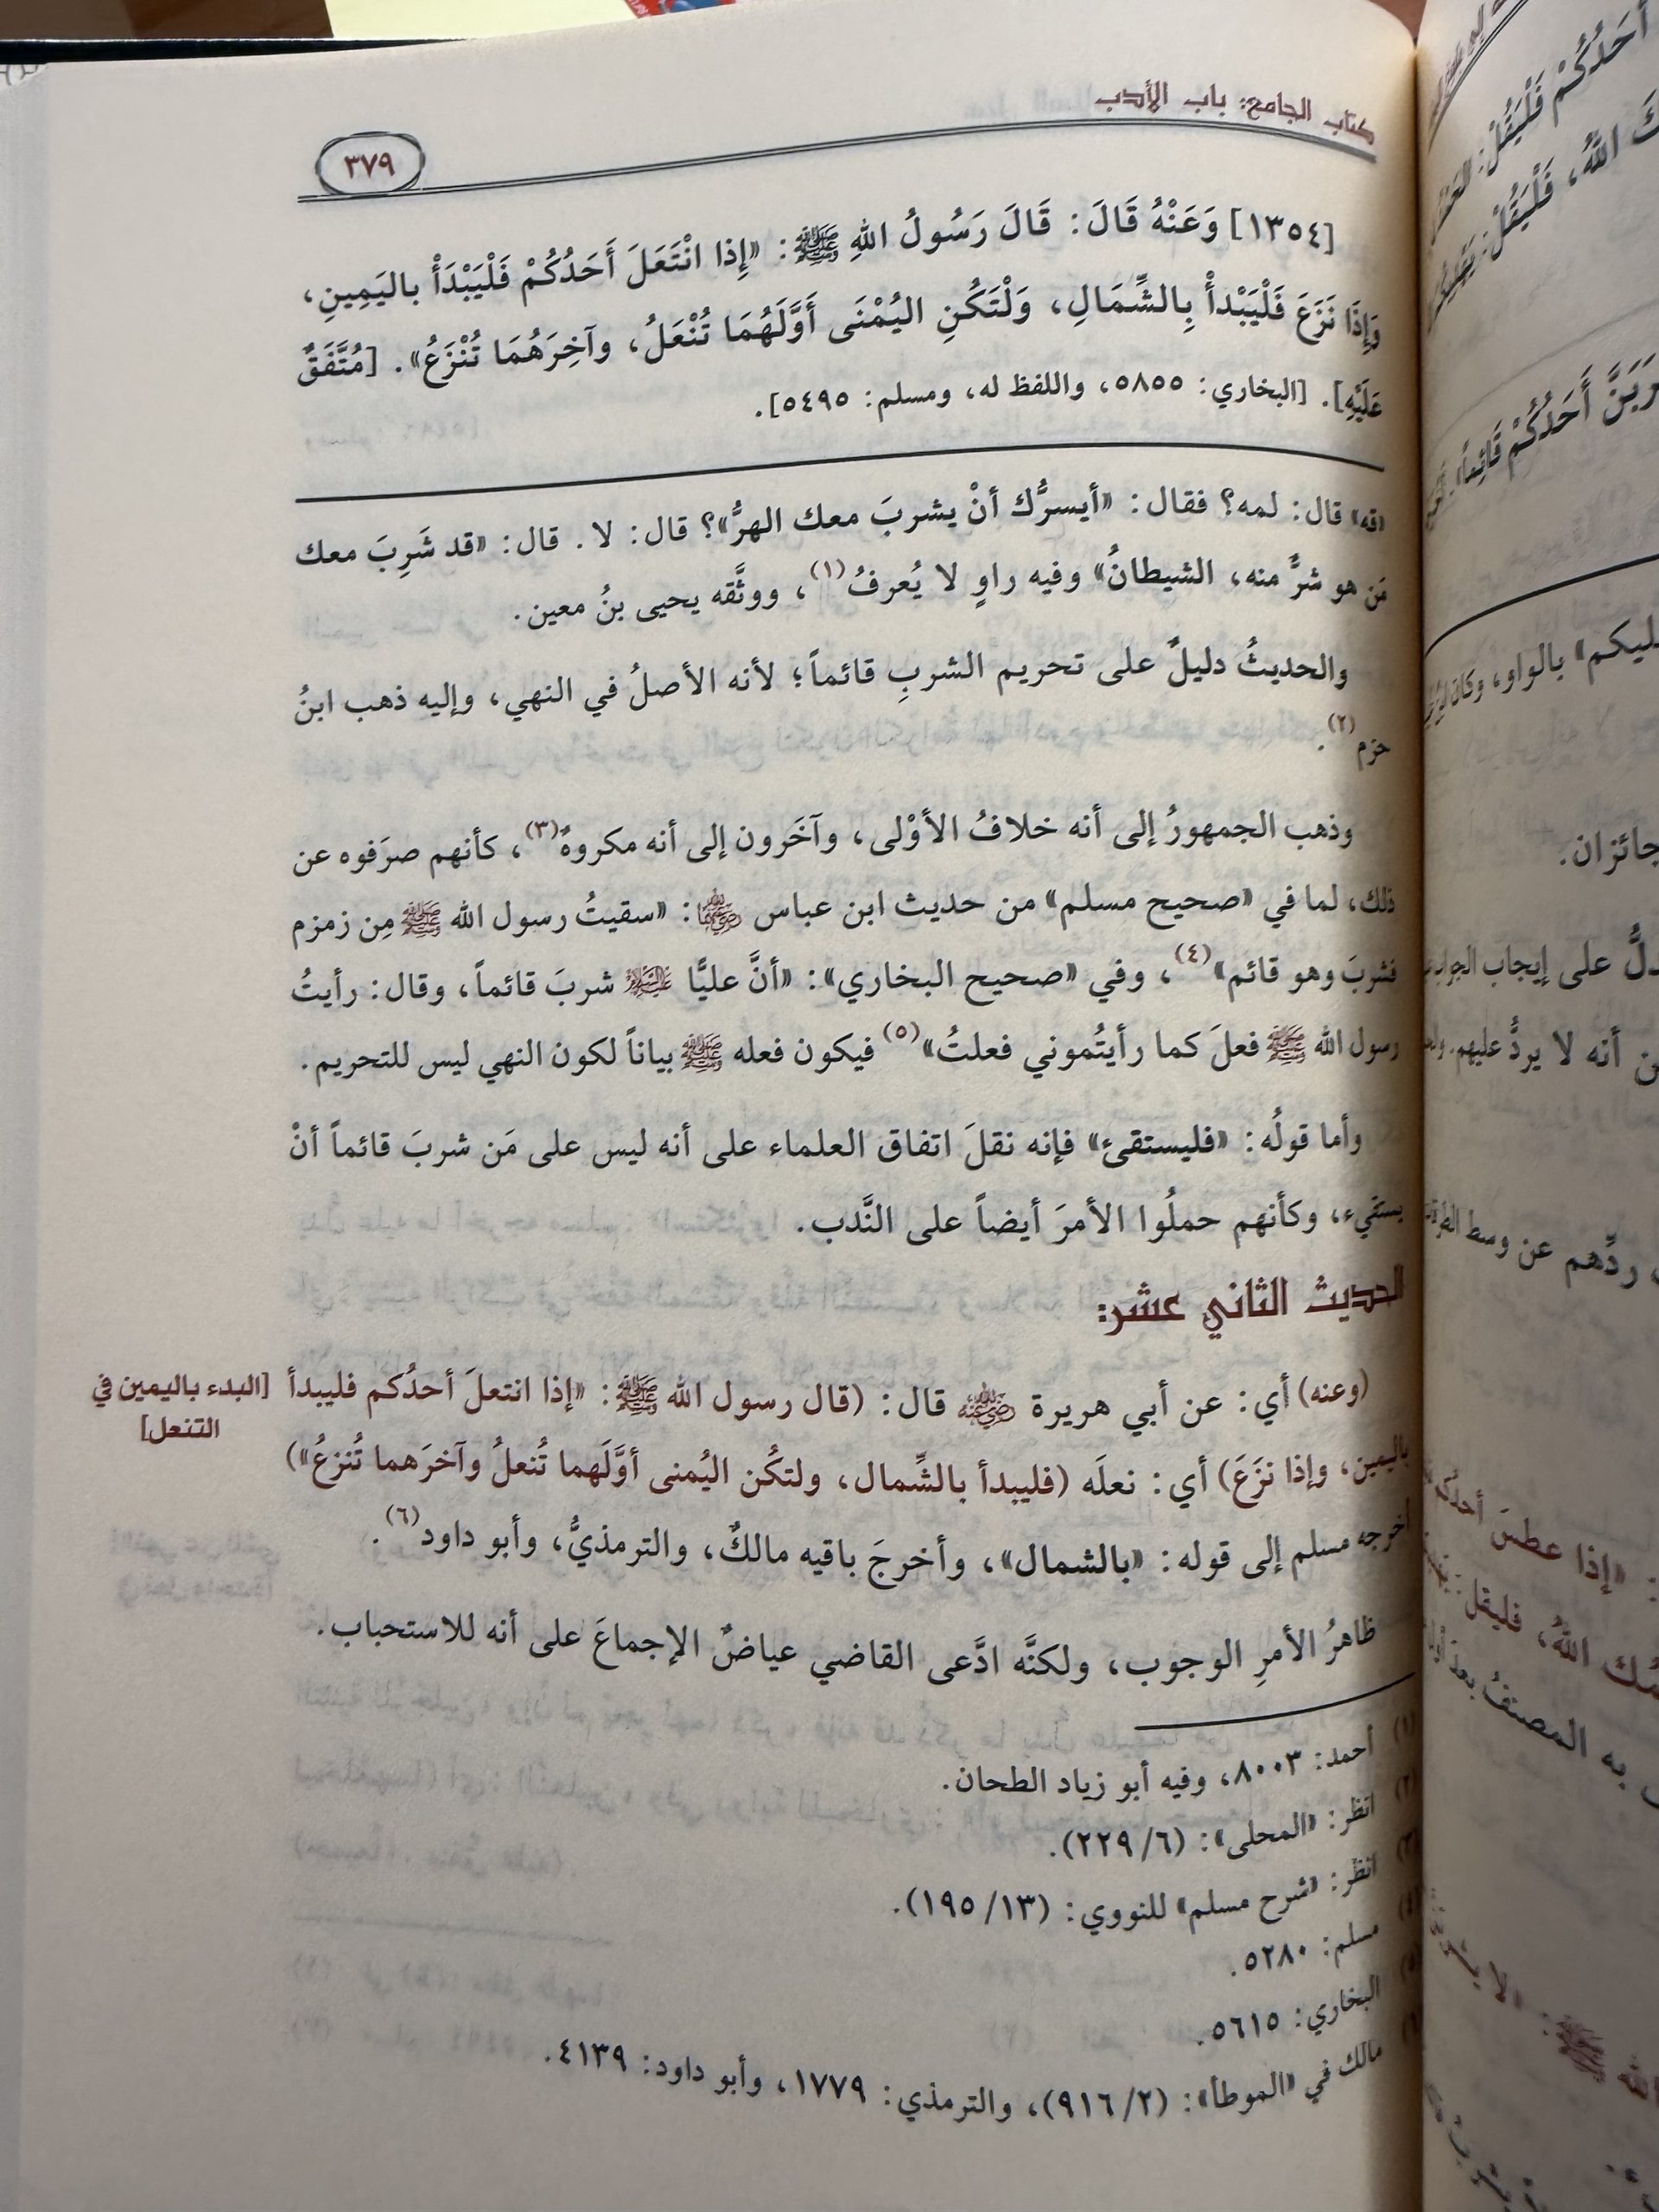 كتاب الجامع: باب الأدب
٣٧٩
[١٣٥٤] وَعَنْهُ قَالَ: قَالَ رَسُولُ اللهِ ﷺ: «إِذا انْتَعَلَ أَحَدُكُمْ فَلْيَبْدَأْ باليَمِينِ،
وَإِذَا نَزَعَ فَلْيَبْدأْ بِالشِّمَالِ، وَلْتَكُنِ اليُمْنَى أَوَّلَهُمَا تُنْعَلُ، وآخِرَهُمَا تُنْزَعُ». [مُتَّفَقٌ
عَلَيْهِ]. [البخاري: ٥٨٥٥، واللفظ له، ومسلم: ٥٤٩٥].
«قه» قال: لمه؟ فقال: «أيسرُّك أنْ يشربَ معك الهرُّ»؟ قال: لا. قال: «قد شَرِبَ معك
مَن هو شرٌّ منه، الشيطانُ» وفيه راوٍ لا يُعرفُ(١)، ووثَّقه يحيى بنُ معين.
والحديثُ دليلٌ على تحريم الشربِ قائماً؛ لأنه الأصلُ في النهي، وإليه ذهب ابنُ
حزم(٢).
وذهب الجمهورُ إلى أنه خلافُ الأوْلى، وآخَرون إلى أنه مكروهٌ(٣)، كأنهم صرَفوه عن
ذلك، لما في «صحيح مسلم» من حديث ابن عباس رضي الله عنهما: «سقيتُ رسول الله ﷺ مِن زمزم
فشربَ وهو قائم»(٤)، وفي «صحيح البخاري»: «أنَّ عليًّا عليه السلام شربَ قائماً، وقال: رأيتُ
رسول الله ﷺ فعلَ كما رأيتُموني فعلتُ»(٥) فيكون فعله ﷺ بياناً لكون النهي ليس للتحريم.
وأما قولُه: «فليستقئ» فإنه نقلَ اتفاق العلماء على أنه ليس على مَن شربَ قائماً أنْ
يستقيء، وكأنهم حملُوا الأمرَ أيضاً على النَّدب.
الحديث الثاني عشر:
(وعنه) أي: عن أبي هريرة رضي الله عنه قال: (قال رسول الله ﷺ: «إذا انتعلَ أحدُكم فليبدأ
[البدء باليمين في
التنعل]
باليمين، وإذا نزَعَ) أي: نعلَه (فليبدأ بالشِّمال، ولتكُن اليُمنى أوَّلَهما تُنعلُ وآخرَهما تُنزعُ»)
أخرجه مسلم إلى قوله: «بالشمال»، وأخرجَ باقيه مالكٌ، والترمذيُّ، وأبو داود(٦).
ظاهرُ الأمرِ الوجوب، ولكنَّه ادَّعى القاضي عياضٌ الإجماعَ على أنه للاستحباب.
(١) أحمد: ٨٠٠٣، وفيه أبو زياد الطحان.
(٢) انظر: «المحلى»: (٦/ ٢٢٩).
(٣) انظر: «شرح مسلم» للنووي: (١٣/ ١٩٥).
(٤) مسلم: ٥٢٨٠.
(٥) البخاري: ٥٦١٥.
(٦) مالك في «الموطأ»: (٢/ ٩١٦)، والترمذي: ١٧٧٩، وأبو داود: ٤١٣٩.
أَحَدُكُمْ فَلْيَقُلْ:
كَ اللهُ، فَلْيَقُلْ:
أَحَدُكُمْ قَائِماً
عليكم» بالواو، وكان
جائزان.
على إيجاب
أنه لا يردُّ عليهم
ردِّهم عن وسط
«إذا عطسَ
الله، فليقل
به المصنفُ بعد